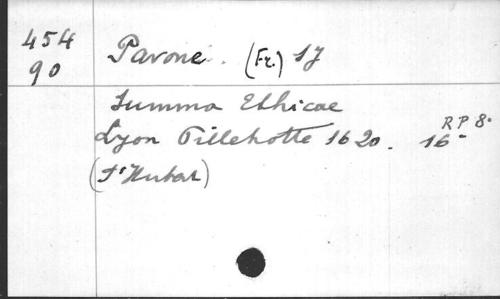 454
90
Pavone. (Fr.) SJ
Summa Ethicae
Lyon Pillehotte 1620. 16°
RP 8.
(St Hubar)